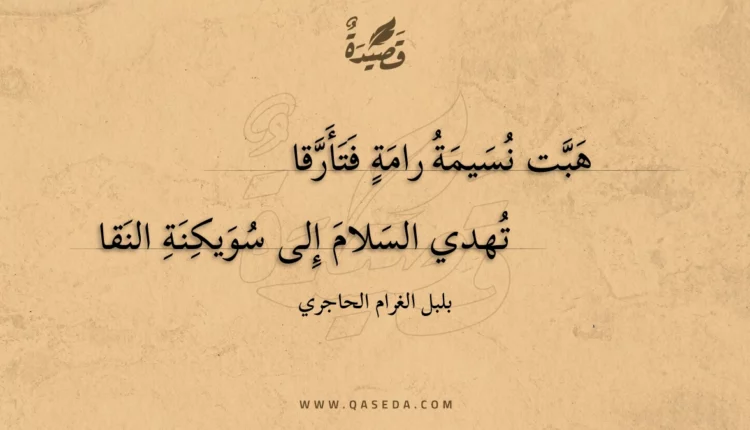 قَصِيدَةٌ
هَبَّت نُسَيمَةُ رامَةٍ فَتَأَرَّقا
تُهدي السَلامَ إِلى سُوَيكِنَةِ النَقا
بلبل الغرام الحاجري
WWW.QASEDA.COM